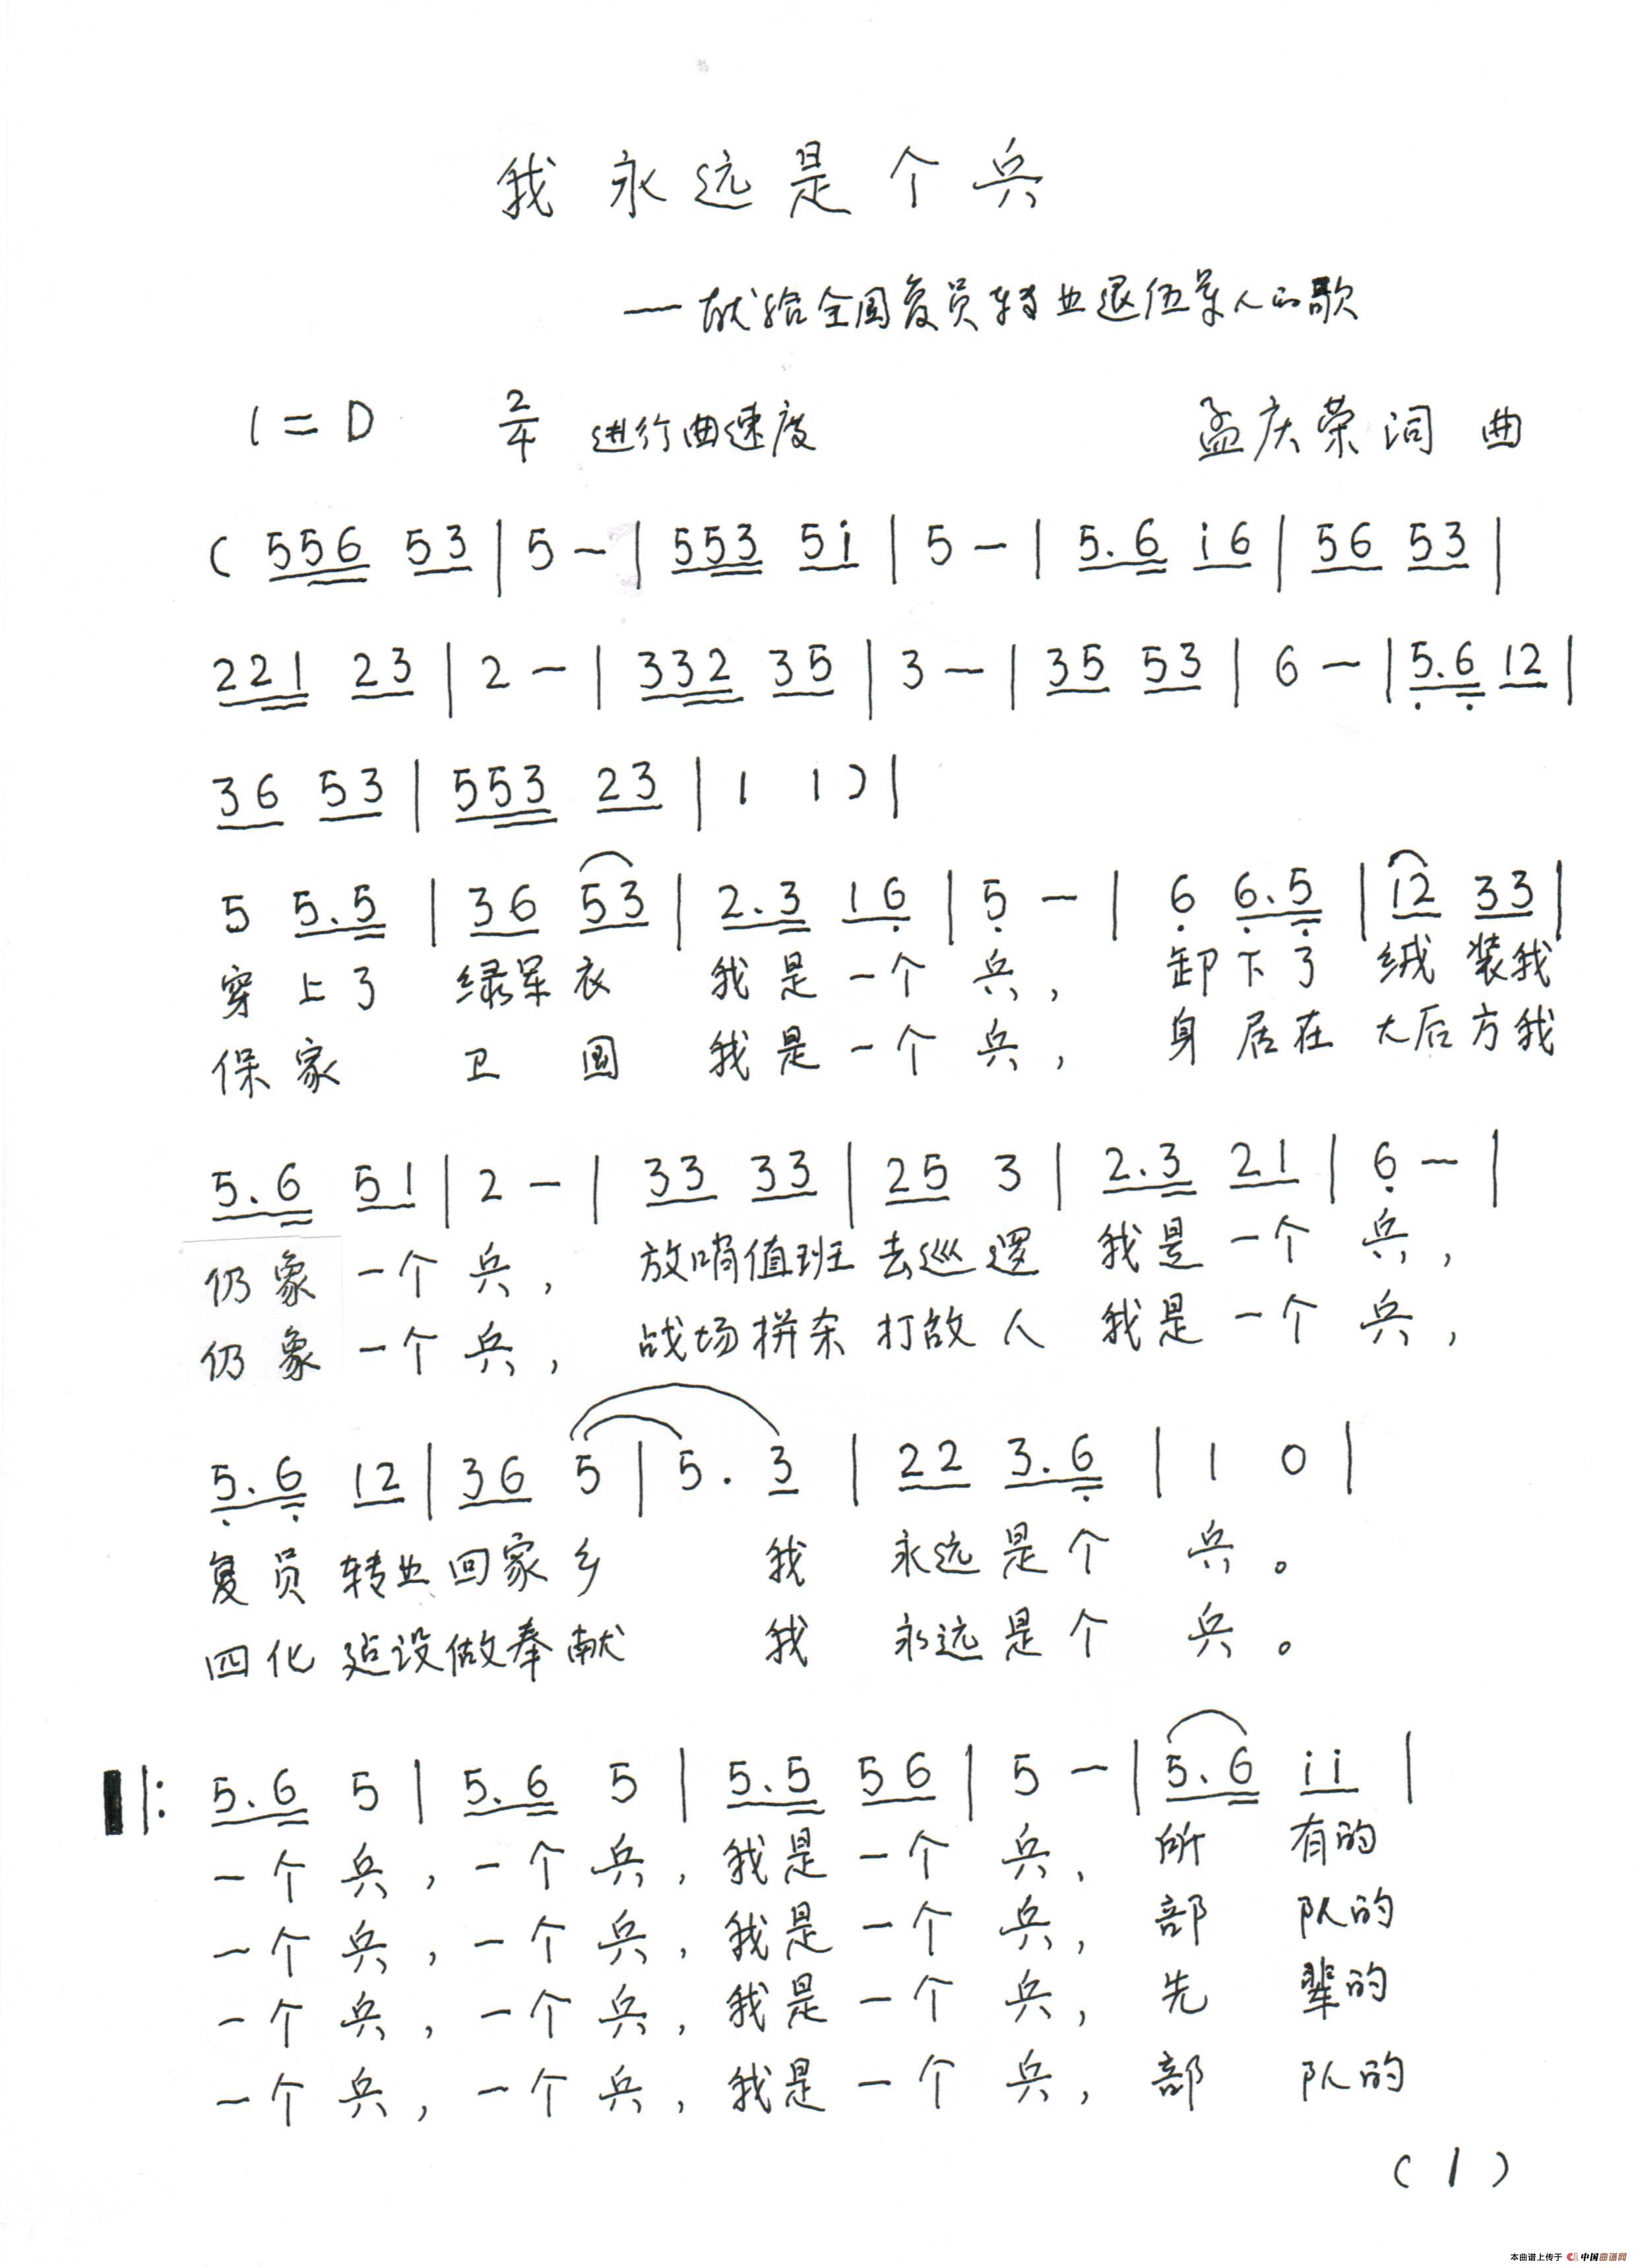 我永远是个兵
—献给全国复员转业退伍军人的歌
1=D 2/4 进行曲速度 孟庆荣词 曲
( 556 53 | 5 - | 553 5i | 5 - | 5.6 i6 | 56 53 |
221 23 | 2 - | 332 35 | 3 - | 35 53 | 6 - | 5.6 12 |
36 53 | 553 23 | 1 1 ) |
5 5.5 | 36 53 | 2.3 16 | 5 - | 6 6.5 | 12 33 |
穿上了 绿军衣 我是一个兵, 卸下了 绒装我
保家 卫国 我是一个兵, 身居在 大后方我
5.6 51 | 2 - | 33 33 | 25 3 | 2.3 21 | 6 - |
仍象一个兵, 放哨值班去巡逻 我是一个兵,
仍象一个兵, 战场拼杀打敌人 我是一个兵,
5.6 12 | 36 5 | 5. 3 | 22 3.6 | 1 0 |
复员转业回家乡 我 永远是个 兵。
四化建设做奉献 我 永远是个 兵。
|: 5.6 5 | 5.6 5 | 5.5 56 | 5 - | 5.6 ii |
一个兵,一个兵,我是一个兵, 所 有的
一个兵,一个兵,我是一个兵, 部 队的
一个兵,一个兵,我是一个兵, 先 辈的
一个兵,一个兵,我是一个兵, 部 队的
(1)
本曲谱上传于 中国曲谱网